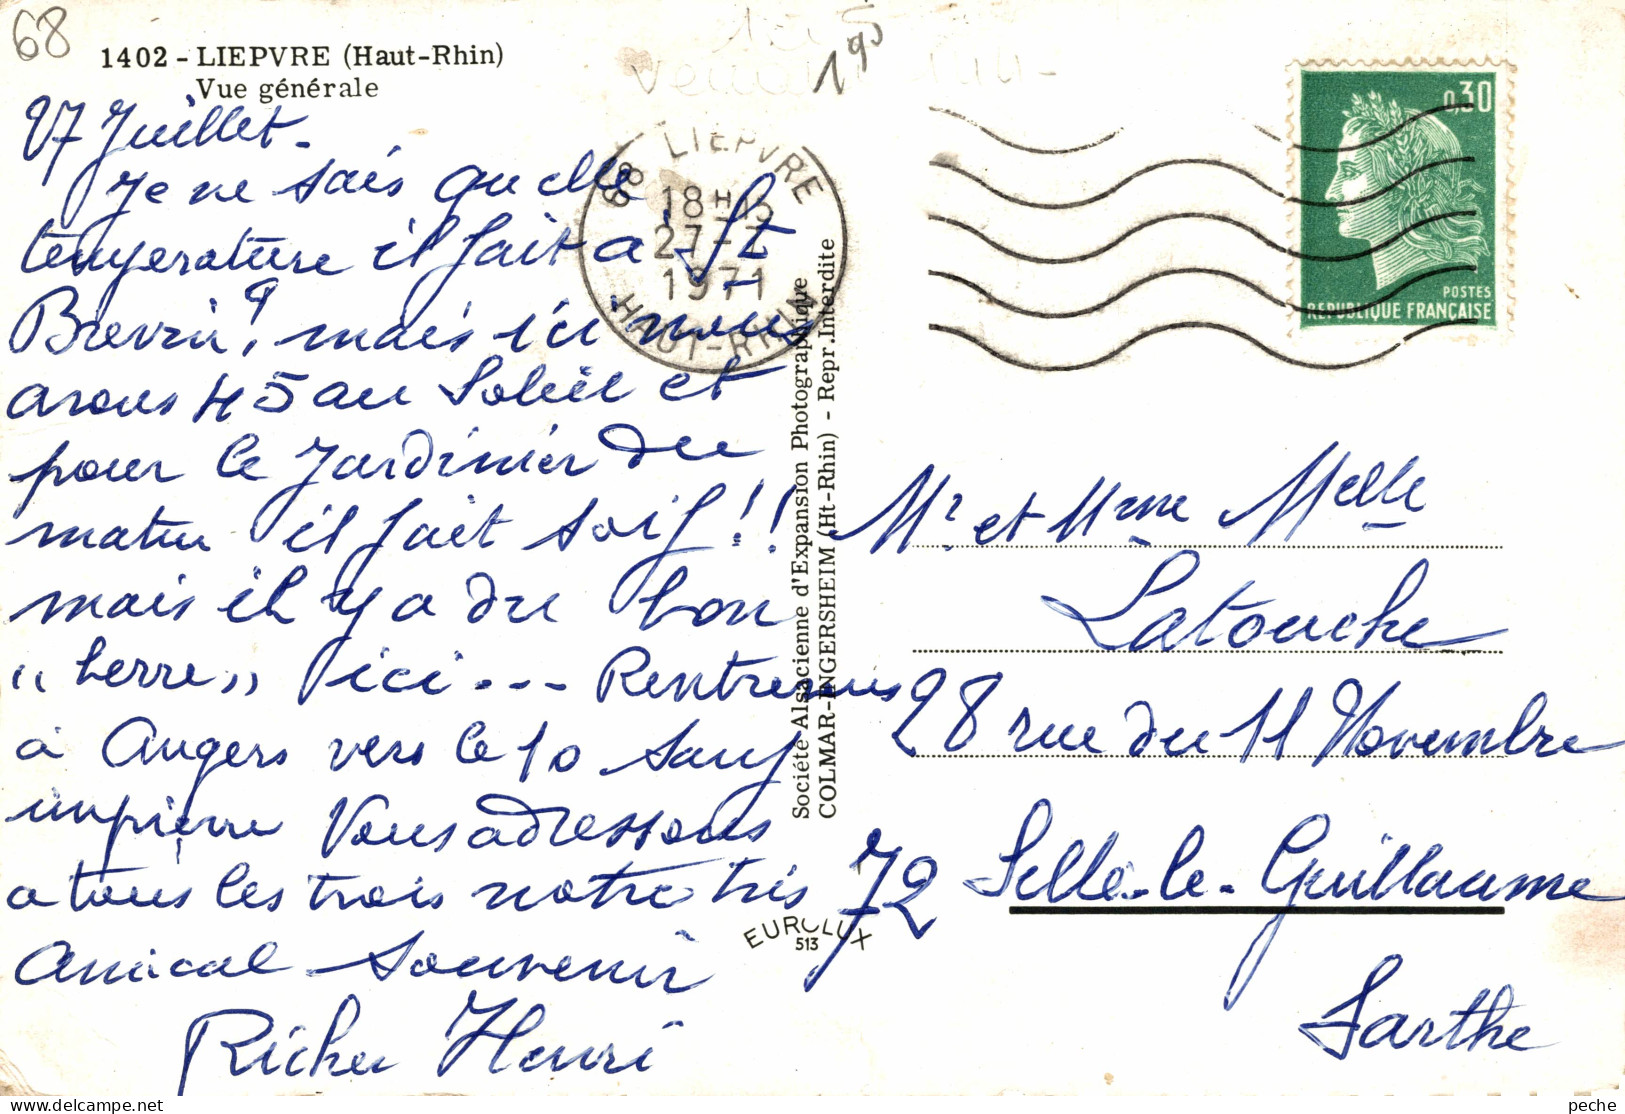 68
1402 - LIEPVRE (Haut-Rhin)
Vue générale
195
27 Juillet.
Je ne sais quelle
temperature il fait à St
Brevin?, mais ici nous
avons 45 au Soleil et
pour le Jardinier du
matin il fait soif!!
mais il y a du bon
"herre" ici... Rentrerons
à Angers vers le 10 sauf
imprévu Vous adressons
a tous les trois notre très
Amical Souvenir
Richer Henri
68 LIEPVRE
18H15
27-7
1971
HAUT-RHIN
0,30
POSTES
REPUBLIQUE FRANÇAISE
Société Alsacienne d'Expansion Photographique
COLMAR-INGERSHEIM (Ht-Rhin) - Repr. Interdite
EUROLUX
513
Mr et Mme Melle
Latouche
28 rue du 11 Novembre
72 Sille-le-Guillaume
Sarthe
peche